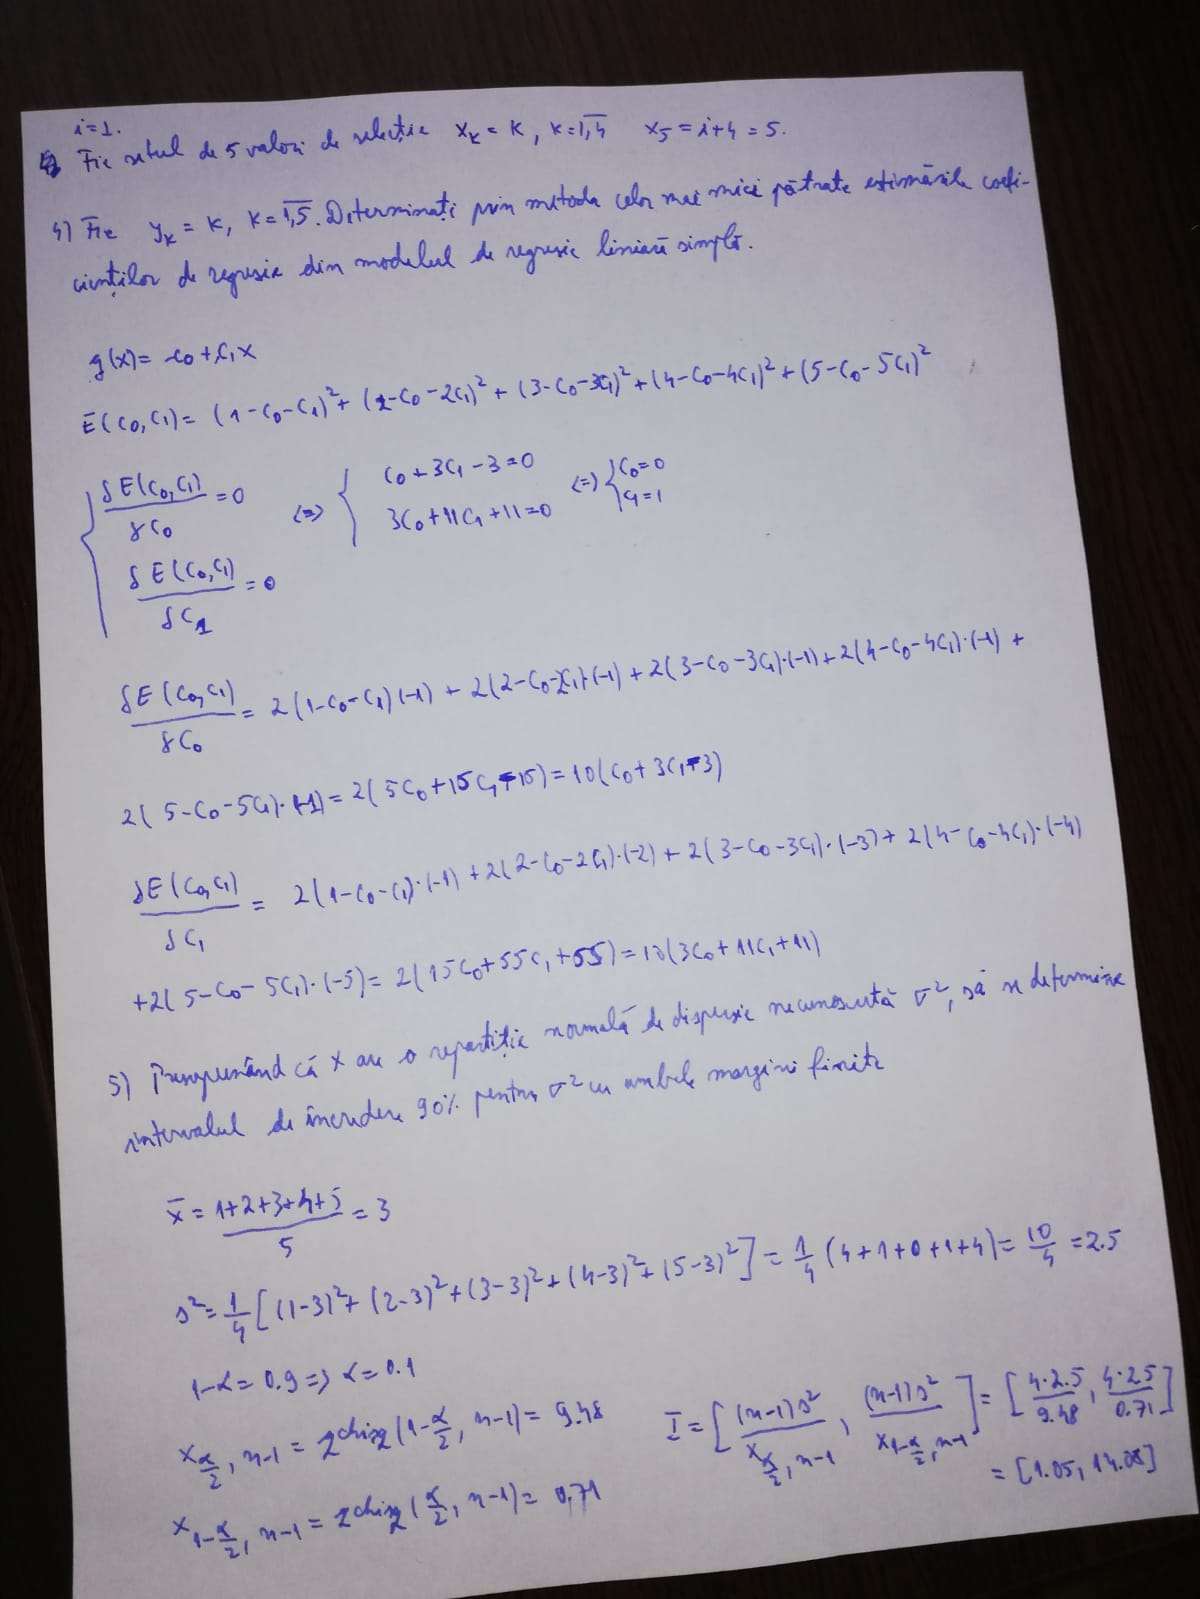 i=1.
Fie setul de 5 valori de selecție x_k = k, k=1,4 x_5 = i+4 = 5.
4) Fie y_k = k, k=1,5. Determinați prin metoda celor mai mici pătrate estimările coefi-
cienților de regresie din modelul de regresie liniară simplă.
g(x)= c0+c1x
E(c0,c1)= (1-c0-c1)²+ (2-c0-2c1)²+ (3-c0-3c1)²+(4-c0-4c1)²+(5-c0-5c1)²
{ δE(c0,c1)/δc0 =0 <=> { c0+3c1-3=0 <=> { c0=0
δE(c0,c1)/δc1 =0 3c0+11c1+11=0 c1=1
δE(c0,c1)/δc0 = 2(1-c0-c1)(-1) + 2(2-c0-2c1)·(-1) + 2(3-c0-3c1)·(-1)+2(4-c0-4c1)·(-1) +
2(5-c0-5c1)·(-1)= 2(5c0+15c1-15)=10(c0+3c1-3)
δE(c0,c1)/δc1 = 2(1-c0-c1)·(-1) +2(2-c0-2c1)·(-2) + 2(3-c0-3c1)·(-3)+ 2(4-c0-4c1)·(-4)
+2(5-c0-5c1)·(-5)= 2(15c0+55c1+55)=10(3c0+11c1+11)
5) Presupunând că x are o repartiție normală de dispersie necunoscută σ², să se determine
intervalul de încredere 90% pentru σ² cu ambele margini finite
x̄ = 1+2+3+4+5/5 = 3
s²= 1/4 [(1-3)²+ (2-3)²+(3-3)²+(4-3)²+(5-3)²] = 1/4 (4+1+0+1+4)= 10/4 =2.5
1-α= 0.9 => α=0.1
x_α/2, n-1 = (1-α/2, n-1)= 9.48 I= [(n-1)s²/x_α/2, n-1 , (n-1)s²/x_1-α/2, n-1] = [4·2.5/9.48, 4·2.5/0.71]
x_1-α/2, n-1 = (α/2, n-1)= 0,71 = [1.05, 14.08]